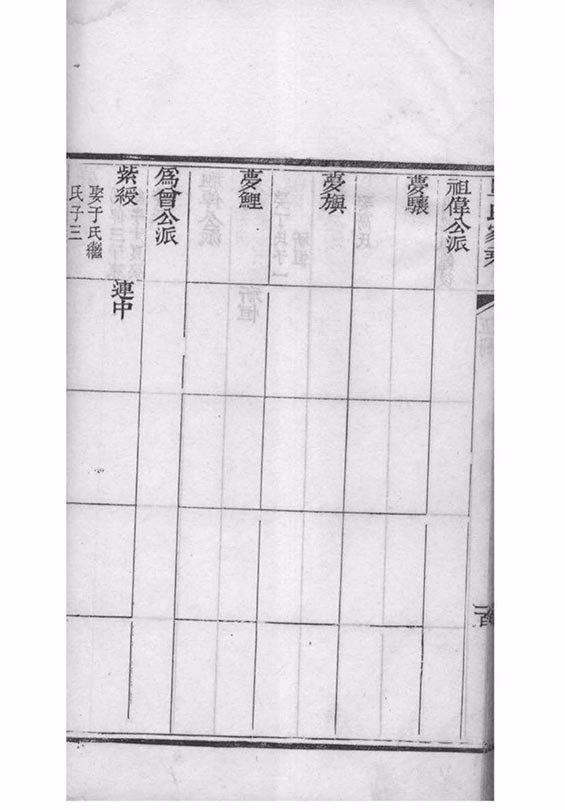 祖偉公派
夢驤
夢旟
夢鯉
為曾公派
紫綬
娶于氏繼
氏子三
連中